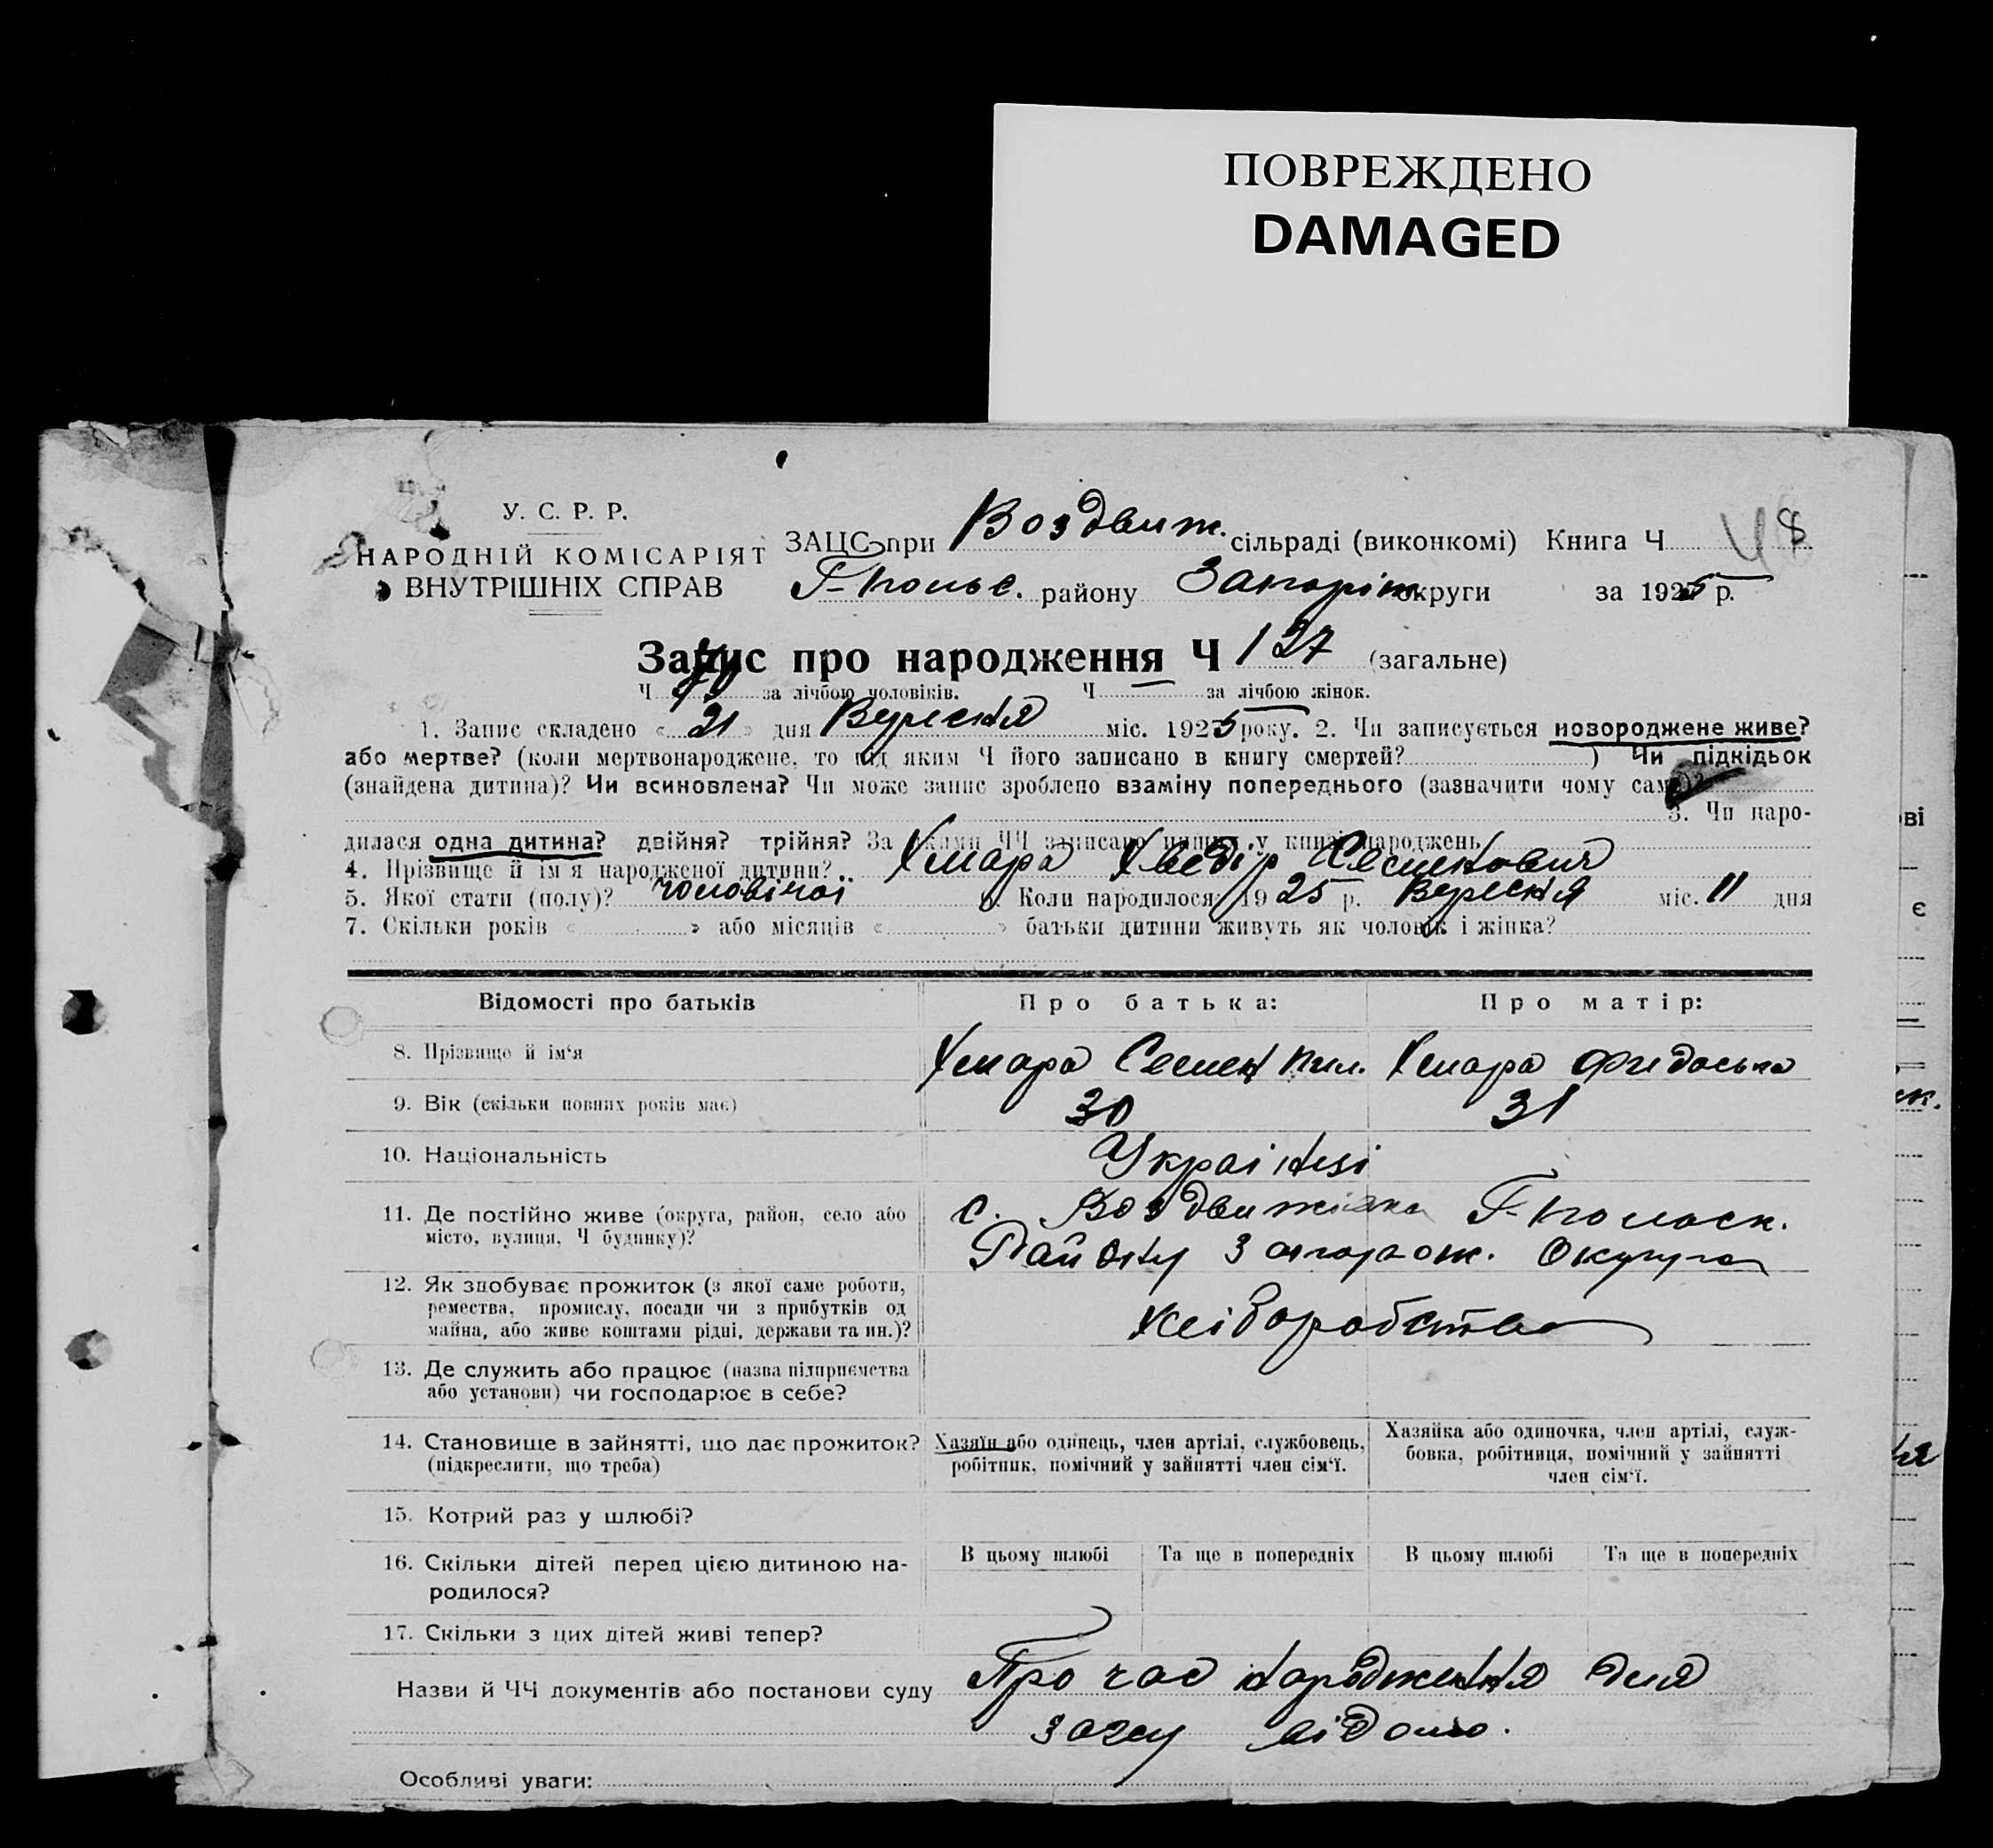 ПОВРЕЖДЕНО
DAMAGED
У. С. Р. Р.
НАРОДНІЙ КОМІСАРІЯТ
ВНУТРІШНІХ СПРАВ
ЗАЦС при Воздвиж. сільраді (виконкомі) Книга Ч
Г-Польс. району Запоріж округи за 1925 р.
Запис про народження Ч 127 (загальне)
Ч за лічбою чоловіків. Ч за лічбою жінок.
1. Запис складено « 21 » дня Вересня міс. 1925 року. 2. Чи записується новороджене живе?
або мертве? (коли мертвонароджене, то під яким Ч його записано в книгу смертей? ) Чи підкідьок
(знайдена дитина)? Чи всиновлена? Чи може запис зроблено взаміну попереднього (зазначити чому саме)?
3. Чи наро-
дилася одна дитина? двійня? трійня? За якими ЧЧ записано инших у книзі народжень
4. Прізвище й ім'я народженої дитини? Хмара Хведір Семенович
5. Якої стати (полу)? чоловічої 6. Коли народилося 1925 р. Вересня міс. 11 дня
7. Скільки років « » або місяців « » батьки дитини живуть як чоловік і жінка?
Відомості про батьків Про батька: Про матір:
8. Прізвище й ім'я Хмара Семен Пил. Хмара Фидоська
9. Вік (скільки повних років має) 30 31
10. Національність Українці
11. Де постійно живе (округа, район, село або с. Воздвижівка Г-Полоск.
місто, вулиця, Ч будинку)? Району Запорож. Округа
12. Як здобуває прожиток (з якої саме роботи,
ремества, промислу, посади чи з прибутків од Хліборобства
майна, або живе коштами рідні, держави та ин.)?
13. Де служить або працює (назва підприємства
або установи) чи господарює в себе?
14. Становище в зайнятті, що дає прожиток? Хазяїн або одинець, член артілі, службовець, Хазяйка або одиночка, член артілі, служ-
(підкреслити, що треба) робітник, помічний у зайнятті член сім'ї. бовка, робітниця, помічний у зайнятті
член сім'ї.
15. Котрий раз у шлюбі?
16. Скільки дітей перед цією дитиною на- В цьому шлюбі Та ще в попередніх В цьому шлюбі Та ще в попередніх
родилося?
17. Скільки з цих дітей живі тепер?
Назви й ЧЧ документів або постанови суду Про час народження для
загсу відомо.
Особливі уваги: